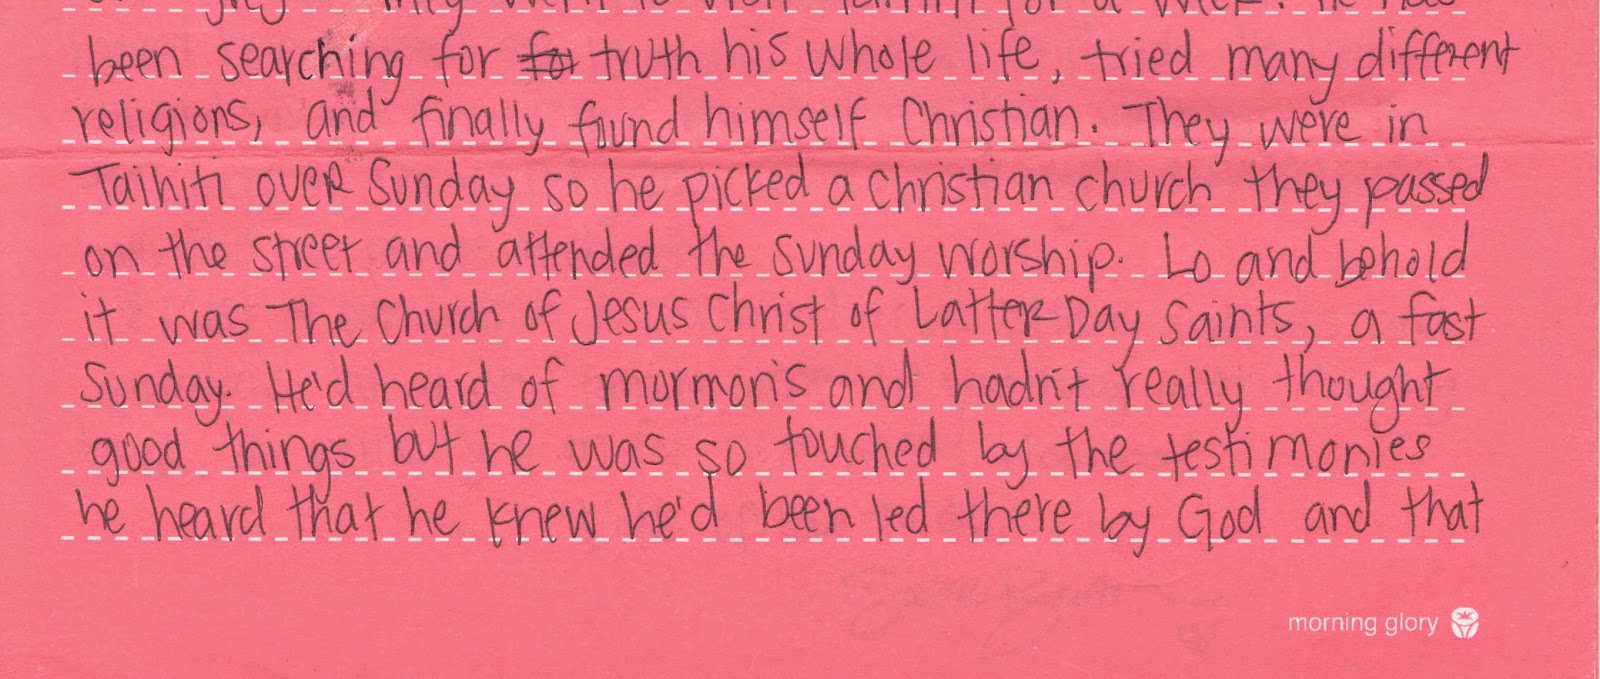 They went to visit Taihiti for a week. He has
been searching for for truth his whole life, tried many different
religions, and finally found himself Christian. They were in
Taihiti over Sunday so he picked a christian church they passed
on the street and attended the Sunday worship. Lo and behold
it was The Church of Jesus Christ of Latter Day Saints, a fast
Sunday. He'd heard of mormon's and hadn't really thought
good things but he was so touched by the testimonies
he heard that he knew he'd been led there by God and that
morning glory